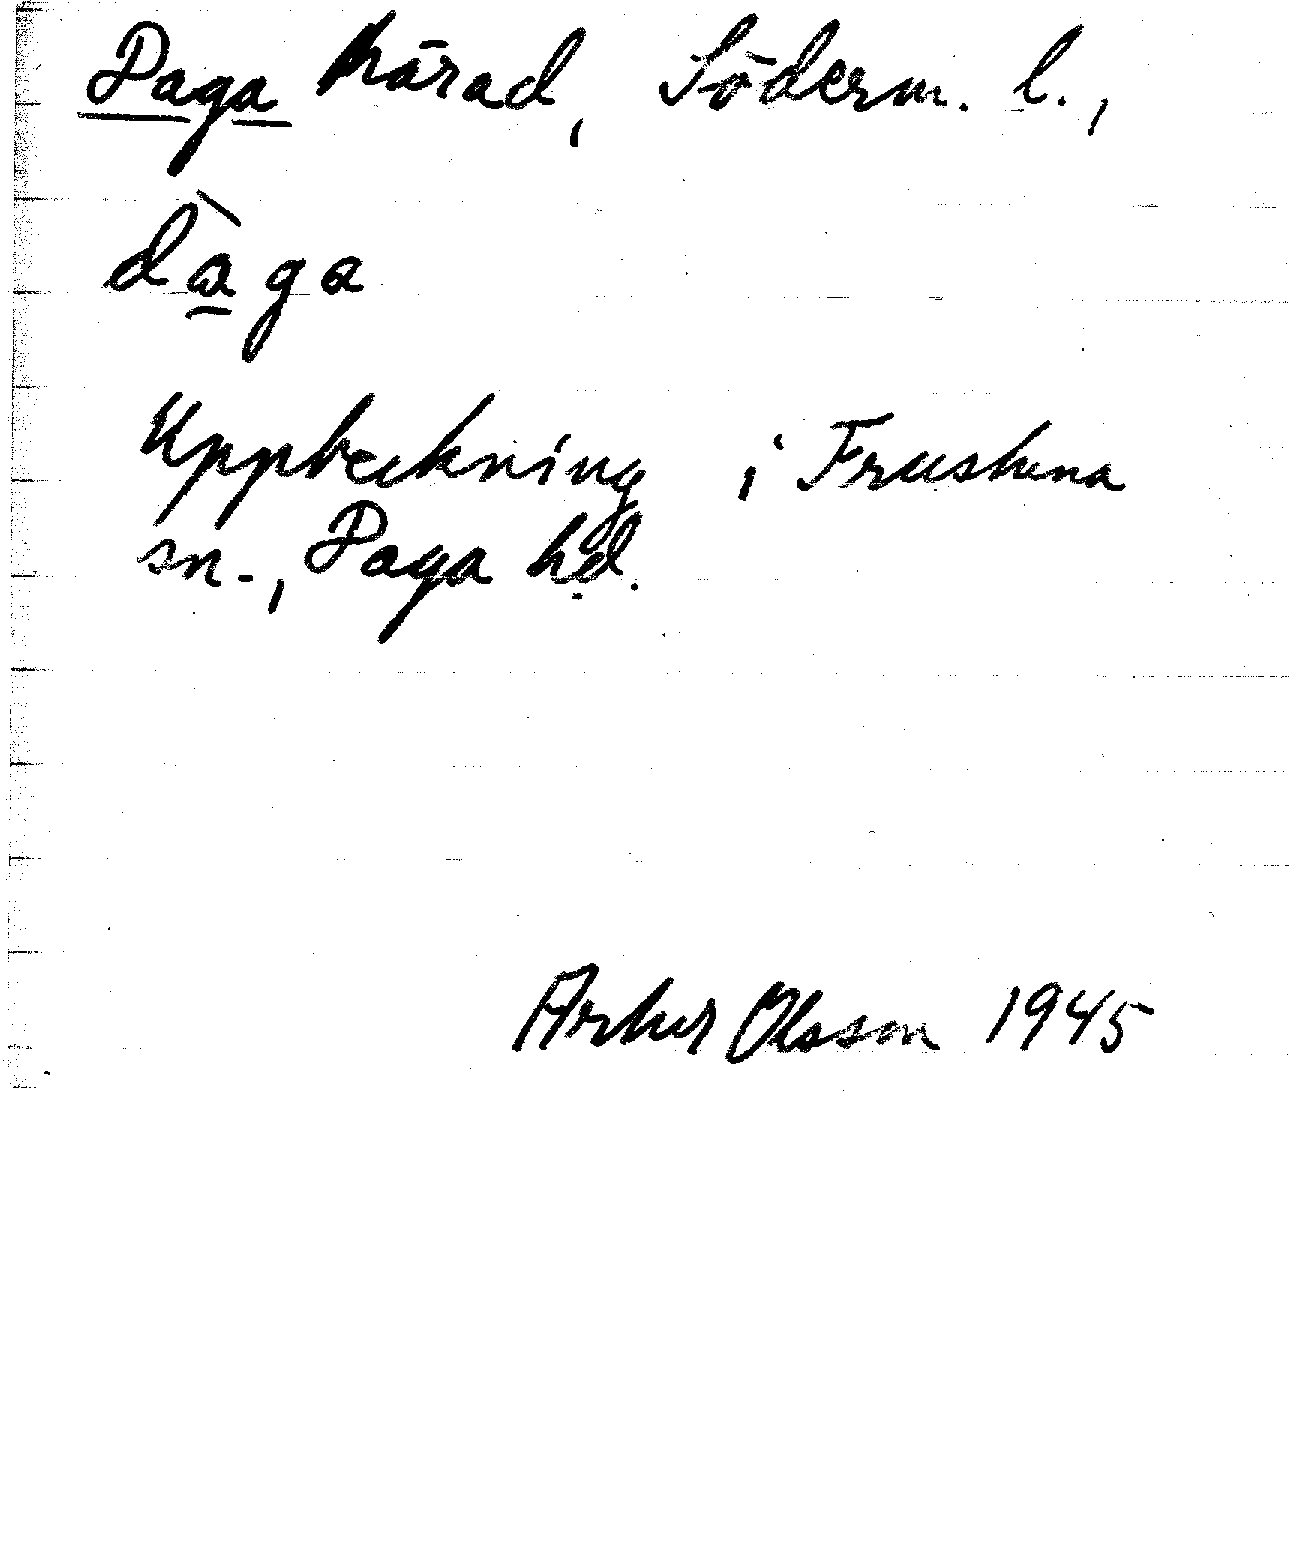 Daga härad, Söderm. l.,
dàga
Uppteckning i Frustuna
sn., Daga hd.
Artur Olsson 1945